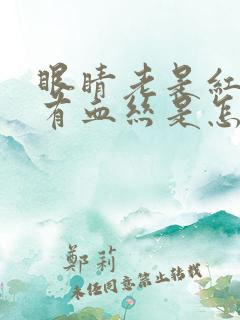 眼睛老是红
有血丝是怎
郑莉
未经同意禁止转载